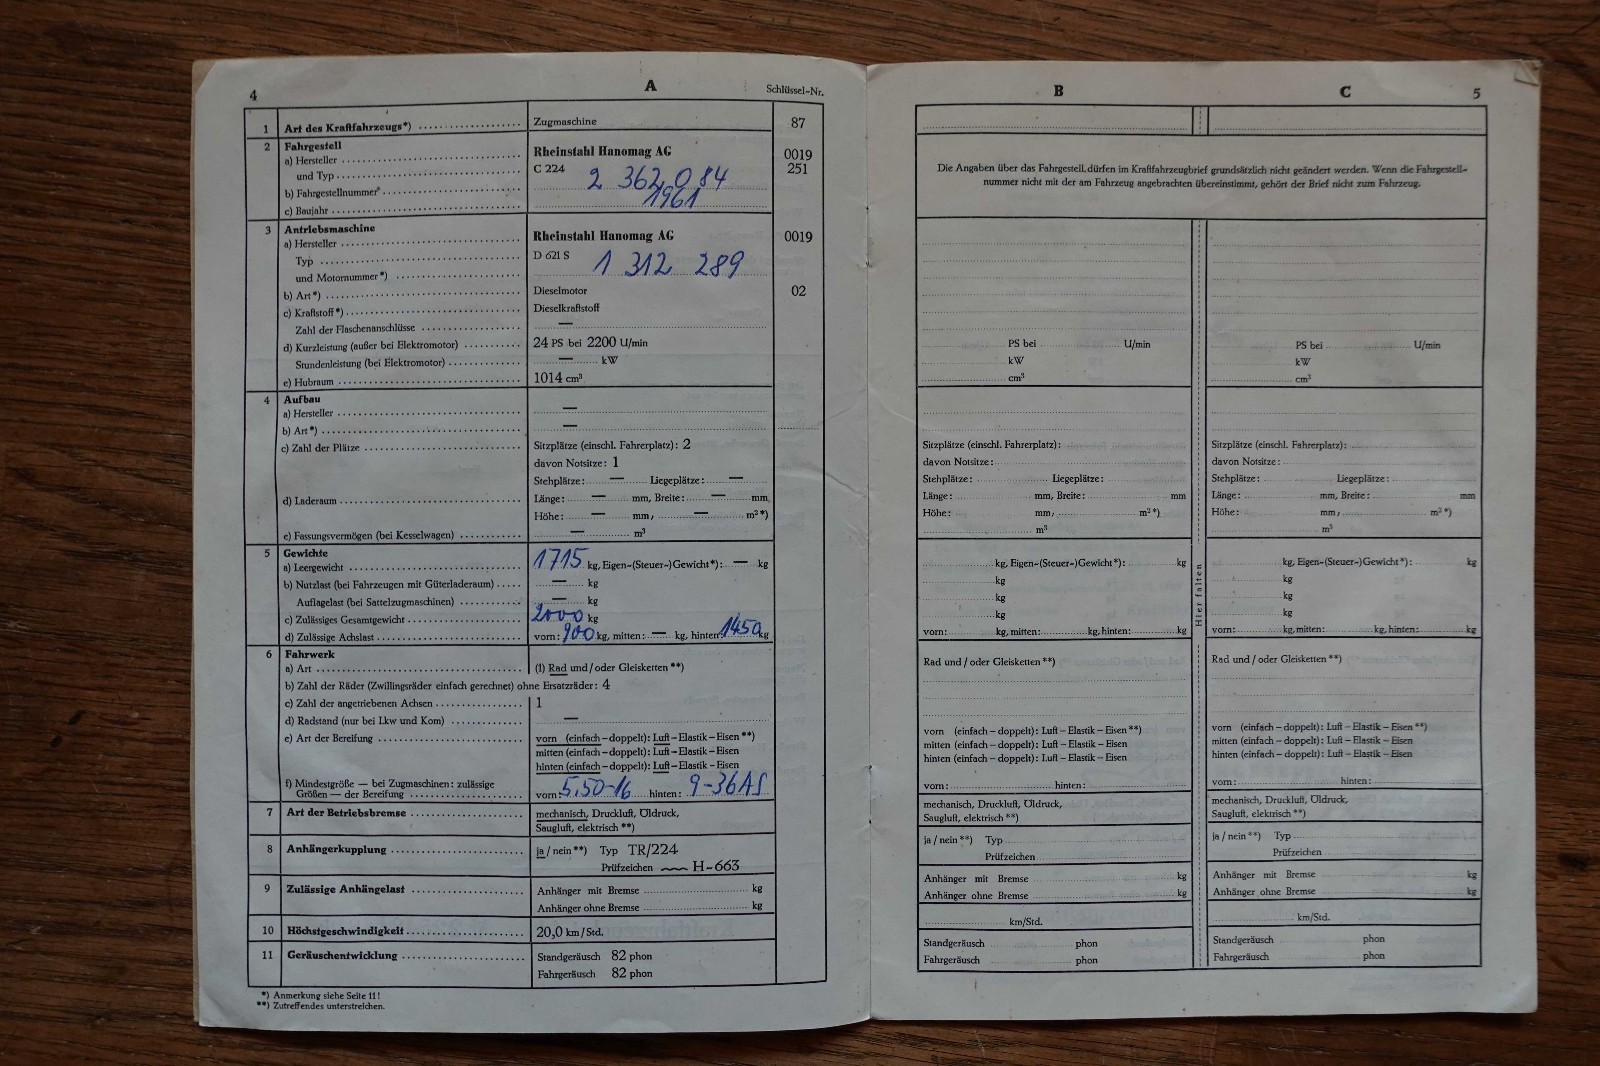 4
A
Schlüssel-Nr.
1 Art des Kraftfahrzeugs*) Zugmaschine 87
2 Fahrgestell
a) Hersteller Rheinstahl Hanomag AG 0019
und Typ C 224 251
b) Fahrgestellnummer* 2 362 084
c) Baujahr 1961
3 Antriebsmaschine
a) Hersteller Rheinstahl Hanomag AG 0019
Typ D 621 S
und Motornummer*) 1 312 289
b) Art*) Dieselmotor 02
c) Kraftstoff*) Dieselkraftstoff
Zahl der Flaschenanschlüsse —
d) Kurzleistung (außer bei Elektromotor) 24 PS bei 2200 U/min
Stundenleistung (bei Elektromotor) — kW
e) Hubraum 1014 cm³
4 Aufbau
a) Hersteller —
b) Art*) —
c) Zahl der Plätze Sitzplätze (einschl. Fahrerplatz): 2
davon Notsitze: 1
Stehplätze: — Liegeplätze: —
d) Laderaum Länge: — mm, Breite: — mm
Höhe: — mm, — m²*)
e) Fassungsvermögen (bei Kesselwagen) — m³
5 Gewichte
a) Leergewicht 1715 kg, Eigen-(Steuer-)Gewicht*): — kg
b) Nutzlast (bei Fahrzeugen mit Güterladeraum) — kg
Auflagelast (bei Sattelzugmaschinen) — kg
c) Zulässiges Gesamtgewicht 2000 kg
d) Zulässige Achslast vorn: 900 kg, mitten: — kg, hinten: 1450 kg
6 Fahrwerk
a) Art (1) Rad und/oder Gleisketten **)
b) Zahl der Räder (Zwillingsräder einfach gerechnet) ohne Ersatzräder: 4
c) Zahl der angetriebenen Achsen 1
d) Radstand (nur bei Lkw und Kom) —
e) Art der Bereifung vorn (einfach – doppelt): Luft – Elastik – Eisen **)
mitten (einfach – doppelt): Luft – Elastik – Eisen
hinten (einfach – doppelt): Luft – Elastik – Eisen
f) Mindestgröße — bei Zugmaschinen: zulässige
Größen — der Bereifung vorn: 5.50-16 hinten: 9-36 AS
7 Art der Betriebsbremse mechanisch, Druckluft, Öldruck,
Saugluft, elektrisch **)
8 Anhängerkupplung ja / nein **) Typ TR/224
Prüfzeichen H-663
9 Zulässige Anhängelast Anhänger mit Bremse kg
Anhänger ohne Bremse kg
10 Höchstgeschwindigkeit 20,0 km/Std.
11 Geräuschentwicklung Standgeräusch 82 phon
Fahrgeräusch 82 phon
*) Anmerkung siehe Seite 11!
**) Zutreffendes unterstreichen.
B C 5
Die Angaben über das Fahrgestell dürfen im Kraftfahrzeugbrief grundsätzlich nicht geändert werden. Wenn die Fahrgestell-
nummer nicht mit der am Fahrzeug angebrachten übereinstimmt, gehört der Brief nicht zum Fahrzeug.
PS bei U/min
kW
cm³
Sitzplätze (einschl. Fahrerplatz):
davon Notsitze:
Stehplätze: Liegeplätze:
Länge: mm, Breite: mm
Höhe: mm, m²*)
m³
kg, Eigen-(Steuer-)Gewicht*): kg
kg
kg
kg
vorn: kg, mitten: kg, hinten: kg
Rad und / oder Gleisketten **)
vorn (einfach – doppelt): Luft – Elastik – Eisen **)
mitten (einfach – doppelt): Luft – Elastik – Eisen
hinten (einfach – doppelt): Luft – Elastik – Eisen
vorn: hinten:
mechanisch, Druckluft, Öldruck,
Saugluft, elektrisch **)
ja / nein **) Typ
Prüfzeichen
Anhänger mit Bremse kg
Anhänger ohne Bremse kg
km/Std.
Standgeräusch phon
Fahrgeräusch phon
Hier falten
PS bei U/min
kW
cm³
Sitzplätze (einschl. Fahrerplatz):
davon Notsitze:
Stehplätze: Liegeplätze:
Länge: mm, Breite: mm
Höhe: mm, m²*)
m³
kg, Eigen-(Steuer-)Gewicht*): kg
kg
kg
kg
vorn: kg, mitten: kg, hinten: kg
Rad und / oder Gleisketten **)
vorn (einfach – doppelt): Luft – Elastik – Eisen **)
mitten (einfach – doppelt): Luft – Elastik – Eisen
hinten (einfach – doppelt): Luft – Elastik – Eisen
vorn: hinten:
mechanisch, Druckluft, Öldruck,
Saugluft, elektrisch **)
ja / nein **) Typ
Prüfzeichen
Anhänger mit Bremse kg
Anhänger ohne Bremse kg
km/Std.
Standgeräusch phon
Fahrgeräusch phon